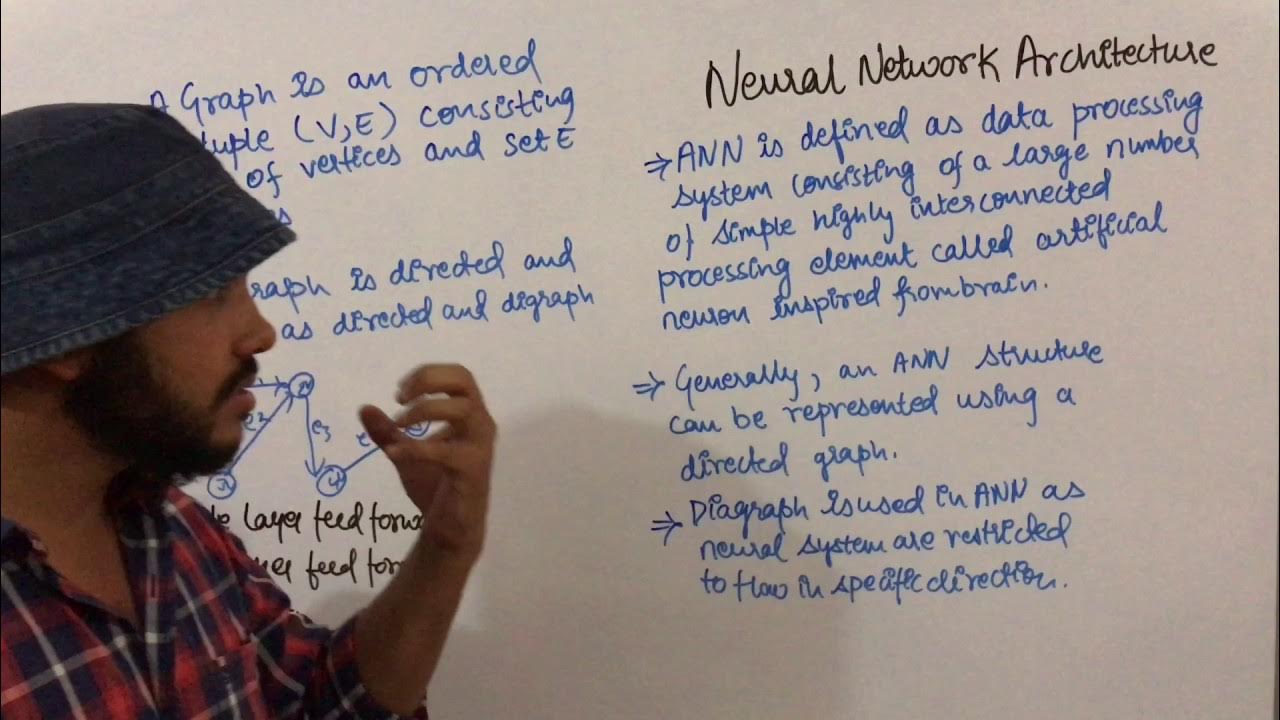 A Graph is an ordered
tuple (V,E) consisting
of vertices and set E
graph is directed and
as directed and digraph
e2
e3
layer feed forw
feed for
Neural Network Architecture
⇒ ANN is defined as data processing
system consisting of a large number
of simple highly interconnected
processing element called artificial
neuron inspired from brain.
⇒ Generally, an ANN structure
can be represented using a
directed graph.
⇒ Diagraph is used in ANN as
neural system are restricted
to flow in specific direction.